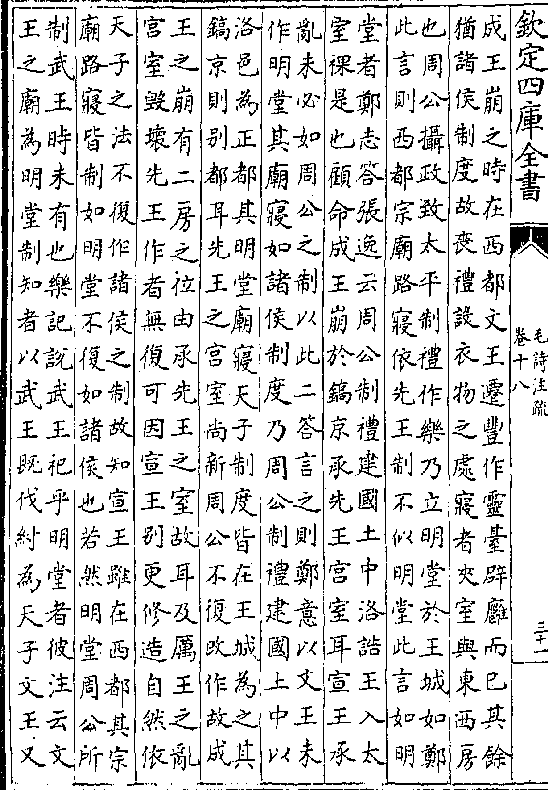 欽定四庫全書
毛詩注疏
卷十八
三十一
成王崩之時在西都文王遷豐作靈臺辟廱而已其餘
猶諸侯制度故喪禮設衣物之處寢者夾室與東西房
也周公攝政致太平制禮作樂乃立明堂於王城如鄭
此言則西都宗廟路寢依先王制不似明堂此言如明
堂者鄭志答張逸云周公制禮建國土中洛誥王入太
室祼是也顧命成王崩於鎬京承先王宮室耳宣王承
亂未必如周公之制以此二答言之則鄭意以文王未
作明堂其廟寢如諸侯制度乃周公制禮建國上中以
洛邑為正都其明堂廟寢天子制度皆在王城為之其
鎬京則別都耳先王之宮室尚新周公不復改作故成
王之崩有二房之位由承先王之室故耳及厲王之亂
宮室毀壞先王作者無復可因宣王別更修造自然依
天子之法不復作諸侯之制故知宣王雖在西都其宗
廟路寢皆制如明堂不復如諸侯也若然明堂周公所
制武王時未有也樂記說武王祀乎明堂者彼注云文
王之廟為明堂制知者以武王既伐紂為天子文王又